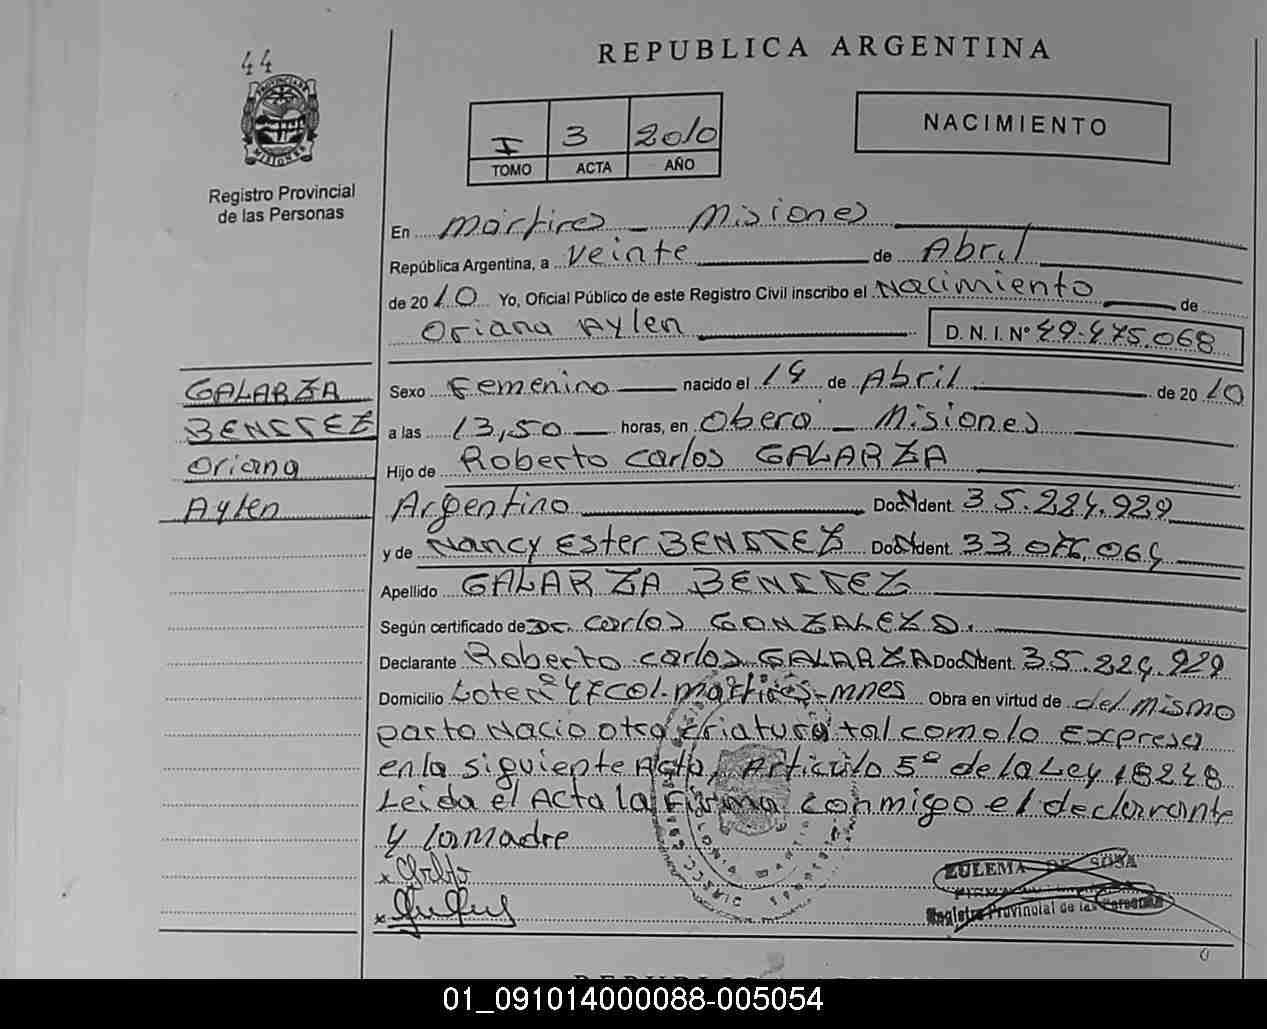 44
REPUBLICA ARGENTINA
PROVINCIA DE
MISIONES
Registro Provincial
de las Personas
I 3 2010
TOMO ACTA AÑO
NACIMIENTO
En Mártires - Misiones
República Argentina, a veinte de Abril
de 2010 Yo, Oficial Público de este Registro Civil inscribo el Nacimiento de
Oriana Aylen D. N. I. Nº 49.475.068
GALARZA
BENITEZ
Oriana
Aylen
Sexo Femenino nacido el 14 de Abril de 2010
a las 13,50 horas, en Oberá - Misiones
Hijo de Roberto Carlos GALARZA
Argentino Doc. Ident. 35.224.929
y de Nancy Ester BENITEZ Doc. Ident. 33.076.064
Apellido GALARZA BENITEZ
Según certificado de Dr. Carlos GONZALEZ D.
Declarante Roberto Carlos GALARZA Doc. Ident. 35.224.929
Domicilio Lote nº 47 Col. Mártires - Mnes Obra en virtud de del mismo
parto Nacio otra criatura tal como lo Expresa
en la siguiente Acta, Articulo 5º de la Ley 18248
Leida el Acta la Firma conmigo el declarante
y la madre
ZULEMA DE SOSA
Registro Provincial de las Personas
REPUBLICA ARGENTINA
01_091014000088-005054